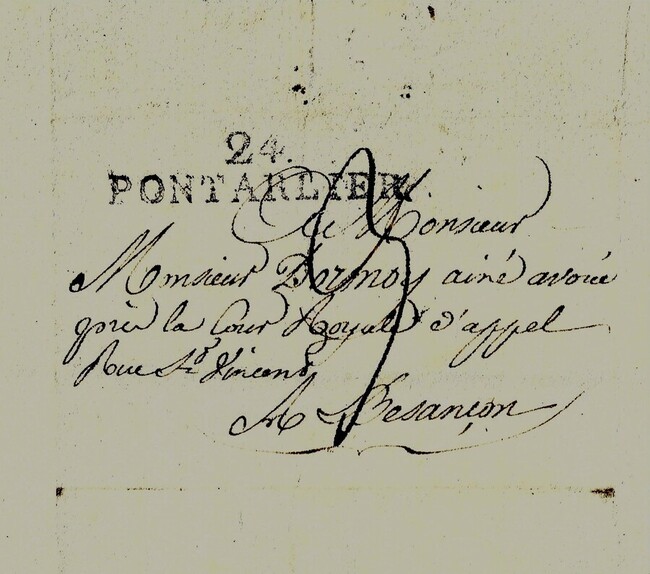 24.
PONTARLIER.
3
A Monsieur
Monsieur Dormoy ainé avoué
près la Cour Royale d'appel
Rue St. Vincent
A Besançon